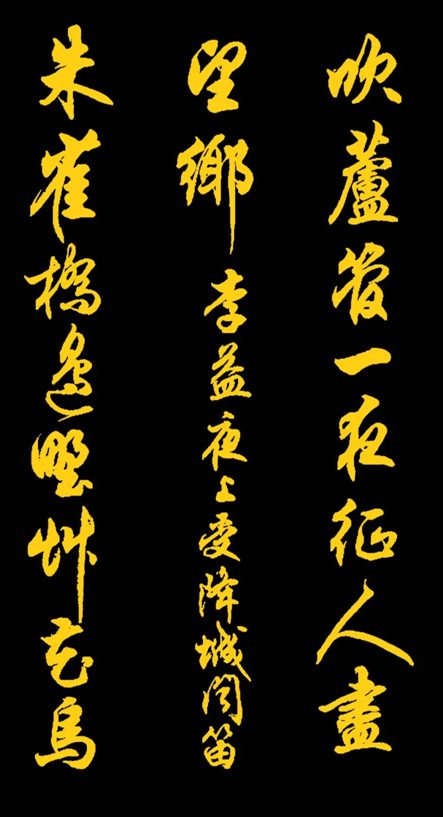 吹蘆管一夜征人盡
望鄉 李益夜上受降城聞笛
朱雀橋邊野艸花烏